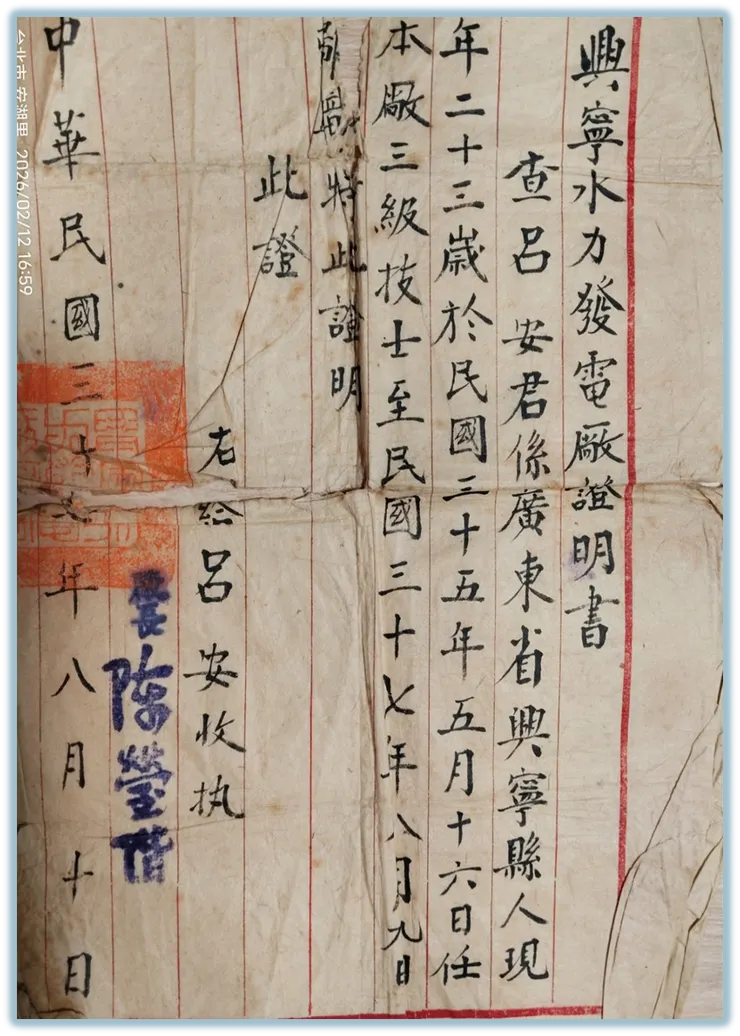 興寧水力發電廠證明書
查呂 安君係廣東省興寧縣人現
年二十三歲於民國三十五年五月十六日任
本廠三級技士至民國三十七年八月九日
離廠特此證明
此證
右給呂 安收执
廠長 陳瑩階
中華民國三十七年八月十日
2026/02/12 16:59